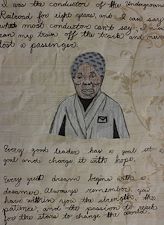 I was the conductor of the Underground
Railroad for eight years, and I can say
what most conductors can't say; I
ran my train off the track and never
lost a passenger.
Every good leader has a goal
goal and change it with hope.
Every great dream begins with a
dreamer. Always remember, you
have within you the strength, the
patience, and the passion to reach
for the stars to change the world.